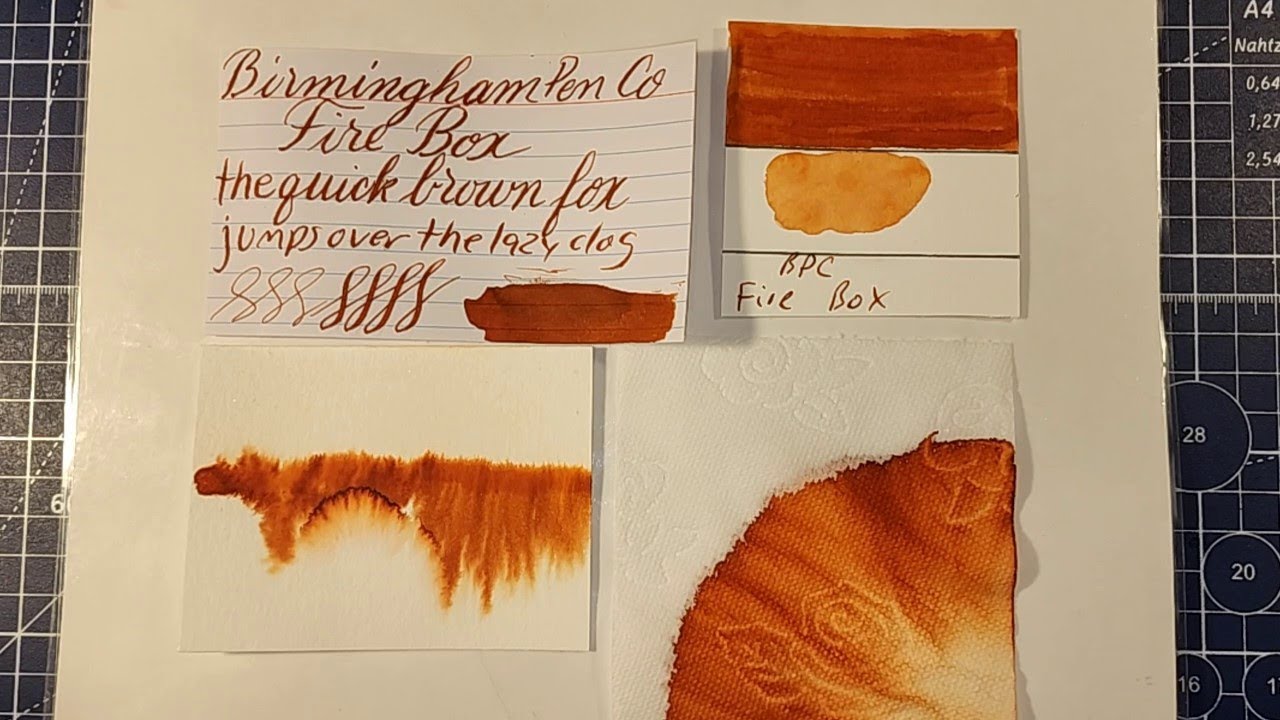 Birmingham Pen Co
Fire Box
the quick brown fox
jumps over the lazy dog
BPC
Fire Box
A4
Nahtz
0,64
1,27
2,54
6
28
20
16
1